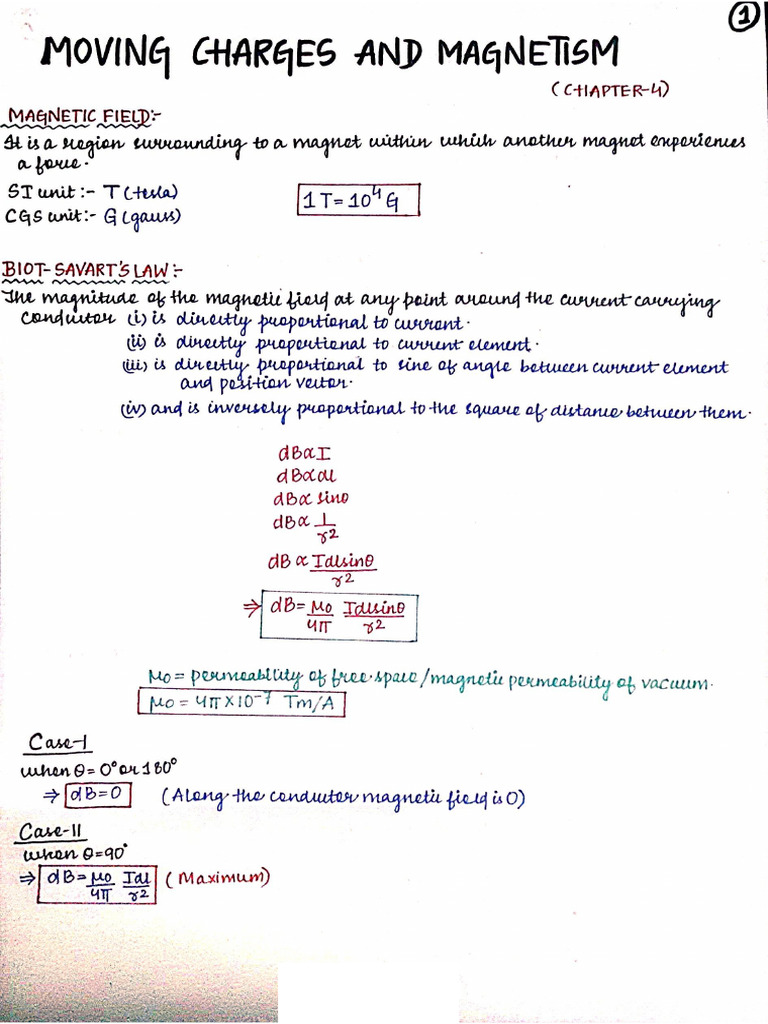 1
MOVING CHARGES AND MAGNETISM
(CHAPTER-4)
MAGNETIC FIELD:-
It is a region surrounding to a magnet within which another magnet experiences
a force.
SI unit:- T (tesla)
1T = 10⁴ G
CGS unit:- G (gauss)
BIOT-SAVART'S LAW:-
The magnitude of the magnetic field at any point around the current carrying
conductor (i) is directly proportional to current.
(ii) is directly proportional to current element.
(iii) is directly proportional to sine of angle between current element
and position vector.
(iv) and is inversely proportional to the square of distance between them.
dB∝I
dB∝dl
dB∝ sinθ
dB∝ 1/r²
dB ∝ Idlsinθ/r²
⇒ dB = μ₀/4π Idlsinθ/r²
μ₀ = permeability of free space/magnetic permeability of vacuum.
μ₀ = 4π×10⁻⁷ Tm/A
Case-I
when θ= 0° or 180°
⇒ dB=0 (Along the conductor magnetic field is 0)
Case-II
when θ=90°
⇒ dB = μ₀/4π Idl/r² (Maximum)